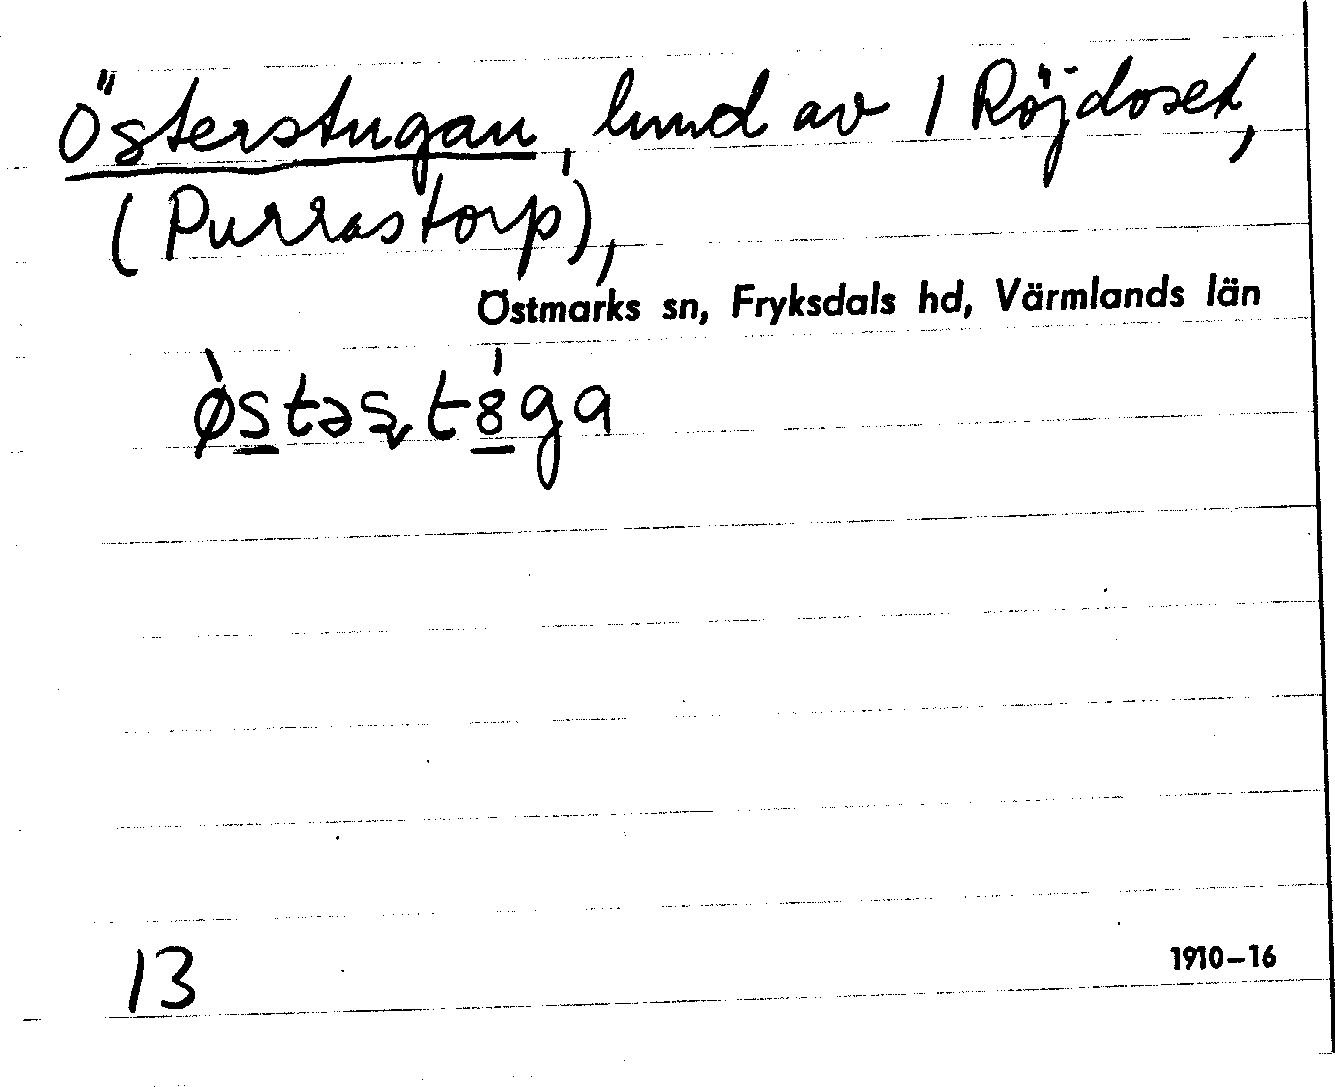 Österstugan, hmd av 1 Röjdoset,
(Purrastorp),
Östmarks sn, Fryksdals hd, Värmlands län
13
1910–16